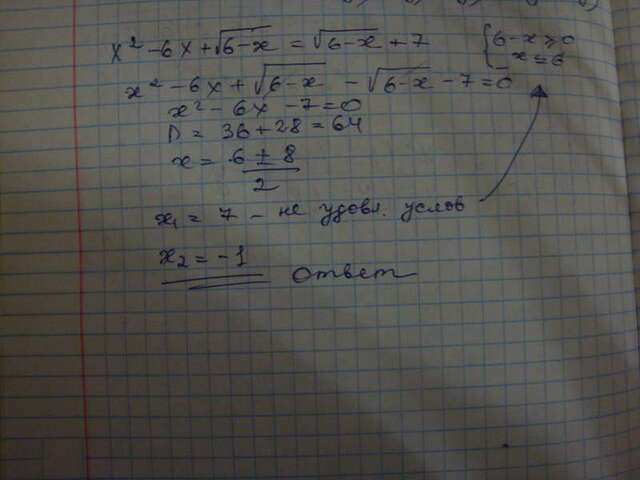 x² - 6x + √6-x = √6-x + 7 { 6-x ≥ 0
x ≤ 6
x² - 6x + √6-x - √6-x - 7 = 0
x² - 6x - 7 = 0
D = 36 + 28 = 64
x = 6 ± 8 / 2
x₁ = 7 - не удовл. услов
x₂ = -1 ответ